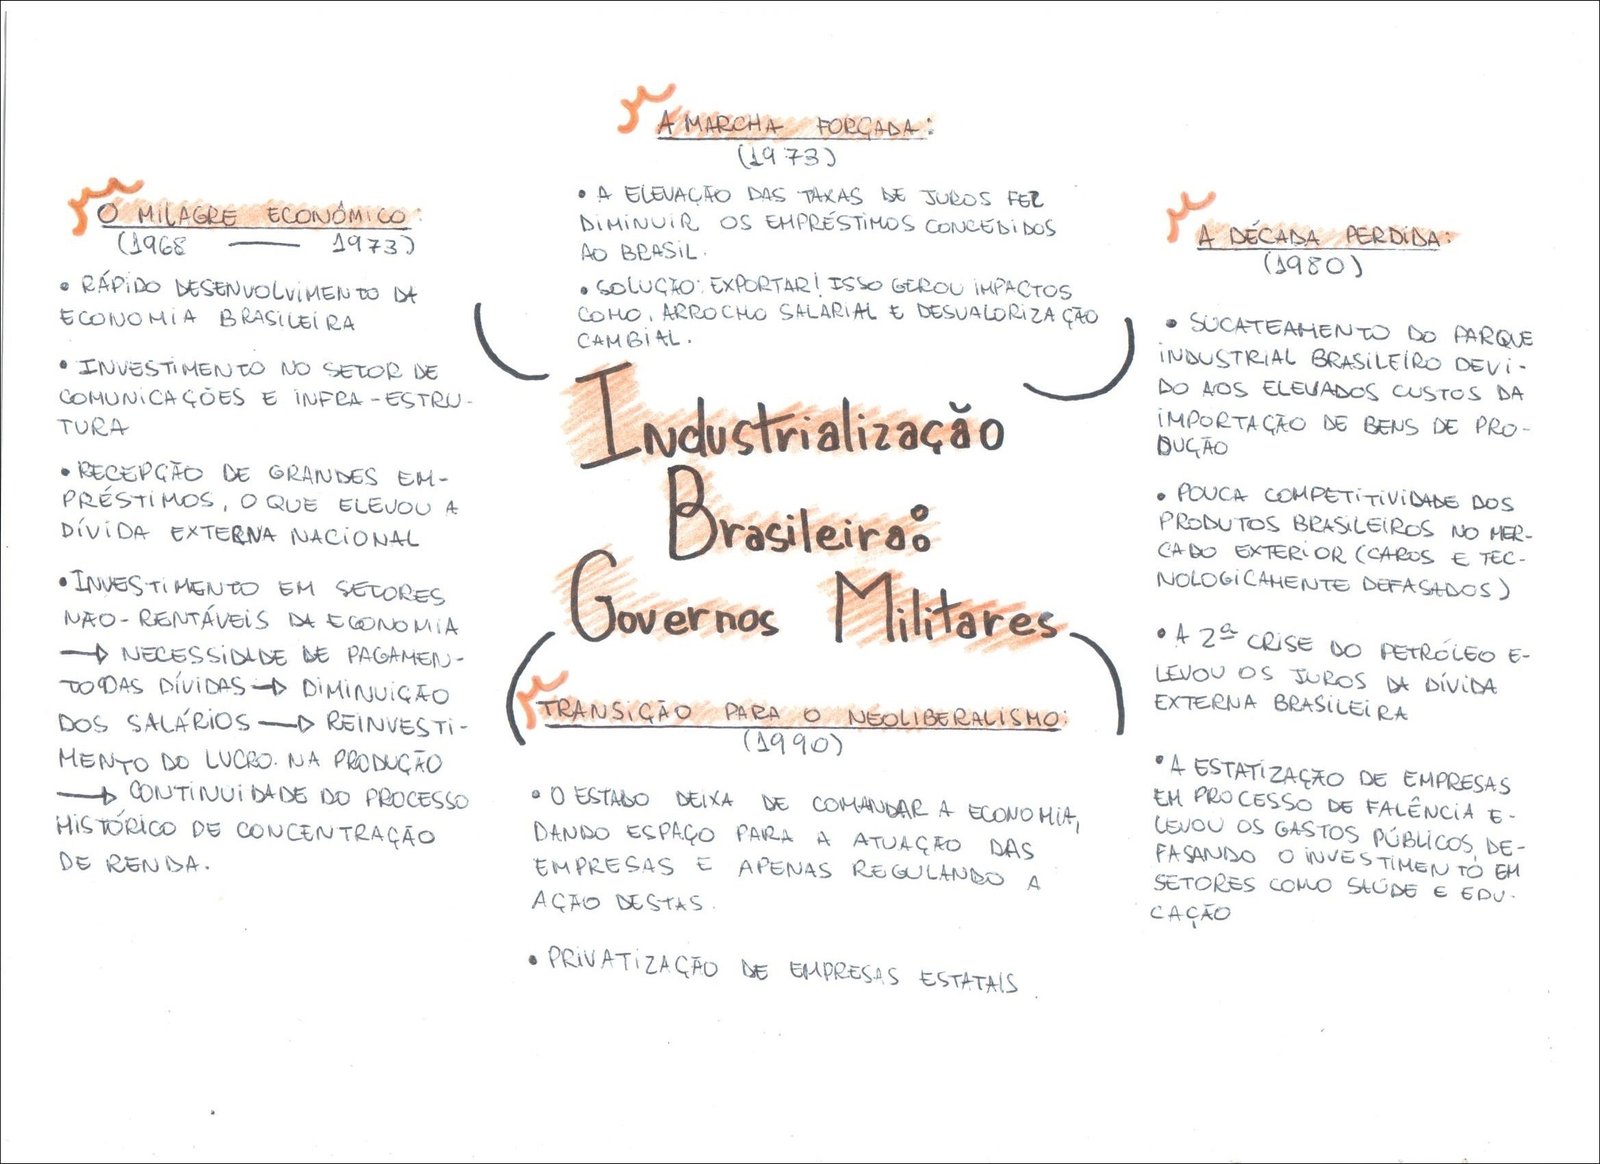 Industrialização
Brasileira:
Governos Militares
O MILAGRE ECONÔMICO:
(1968 — 1973)
• RÁPIDO DESENVOLVIMENTO DA
ECONOMIA BRASILEIRA
• INVESTIMENTO NO SETOR DE
COMUNICAÇÕES E INFRA-ESTRU-
TURA
• RECEPÇÃO DE GRANDES EM-
PRÉSTIMOS, O QUE ELEVOU A
DÍVIDA EXTERNA NACIONAL
• INVESTIMENTO EM SETORES
NÃO-RENTÁVEIS DA ECONOMIA
→ NECESSIDADE DE PAGAMEN-
TO DAS DÍVIDAS → DIMINUIÇÃO
DOS SALÁRIOS → REINVESTI-
MENTO DO LUCRO NA PRODUÇÃO
→ CONTINUIDADE DO PROCESSO
HISTÓRICO DE CONCENTRAÇÃO
DE RENDA.
A MARCHA FORÇADA:
(1973)
• A ELEVAÇÃO DAS TAXAS DE JUROS FEZ
DIMINUIR OS EMPRÉSTIMOS CONCEDIDOS
AO BRASIL.
• SOLUÇÃO: EXPORTAR! ISSO GEROU IMPACTOS
COMO, ARROCHO SALARIAL E DESVALORIZAÇÃO
CAMBIAL.
A DÉCADA PERDIDA:
(1980)
• SUCATEAMENTO DO PARQUE
INDUSTRIAL BRASILEIRO DEVI-
DO AOS ELEVADOS CUSTOS DA
IMPORTAÇÃO DE BENS DE PRO-
DUÇÃO
• POUCA COMPETITIVIDADE DOS
PRODUTOS BRASILEIROS NO MER-
CADO EXTERIOR (CAROS E TEC-
NOLOGICAMENTE DEFASADOS)
• A 2ª CRISE DO PETRÓLEO E-
LEVOU OS JUROS DA DÍVIDA
EXTERNA BRASILEIRA
• A ESTATIZAÇÃO DE EMPRESAS
EM PROCESSO DE FALÊNCIA E-
LEVOU OS GASTOS PÚBLICOS, DE-
FASANDO O INVESTIMENTO EM
SETORES COMO SAÚDE E EDU-
CAÇÃO
TRANSIÇÃO PARA O NEOLIBERALISMO:
(1990)
• O ESTADO DEIXA DE COMANDAR A ECONOMIA,
DANDO ESPAÇO PARA A ATUAÇÃO DAS
EMPRESAS E APENAS REGULANDO A
AÇÃO DESTAS.
• PRIVATIZAÇÃO DE EMPRESAS ESTATAIS.